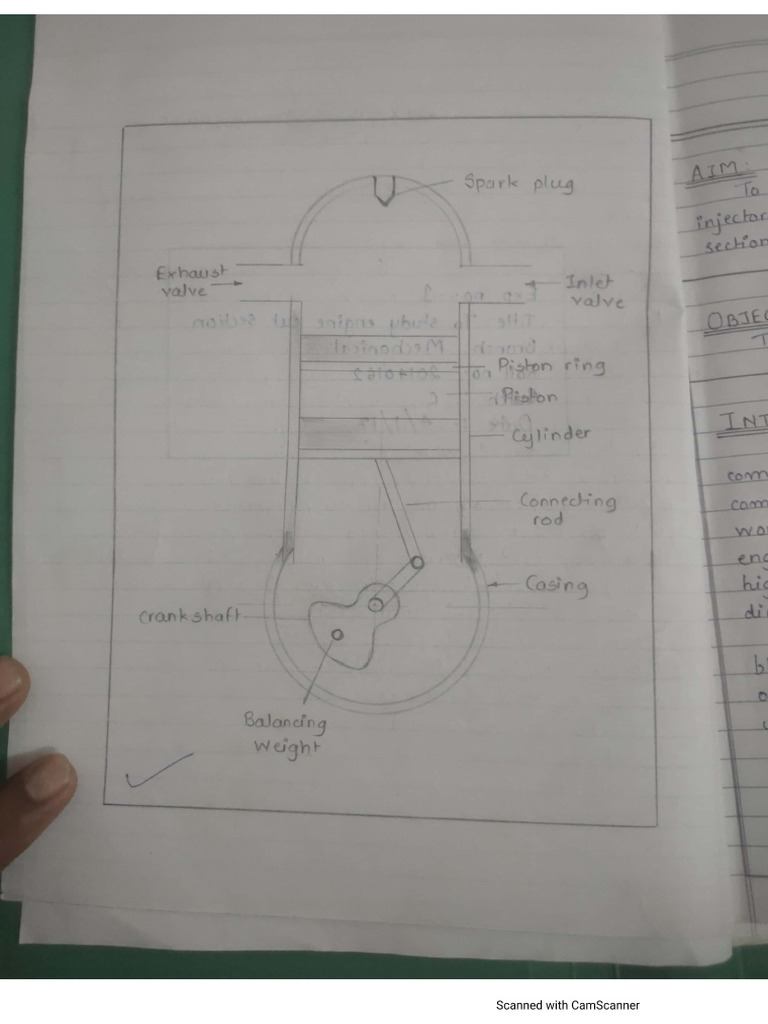 Spark plug
Exhaust
valve
Inlet
valve
Piston ring
Piston
Cylinder
Connecting
rod
Casing
Crankshaft
Balancing
Weight
AIM:
To
injector
section
OBJEC
T
INT
com
com
wo
eng
hig
di
Scanned with CamScanner